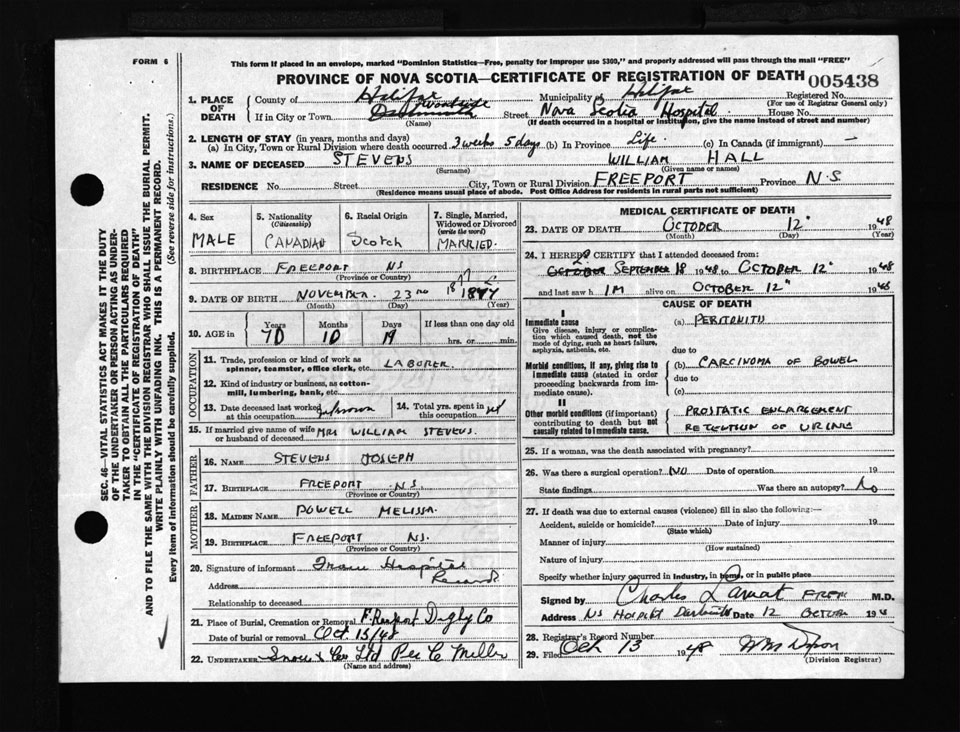 FORM 6
This form if placed in an envelope, marked "Dominion Statistics—Free, penalty for improper use $300," and properly addressed will pass through the mail "FREE"
PROVINCE OF NOVA SCOTIA—CERTIFICATE OF REGISTRATION OF DEATH 005438
1. PLACE OF DEATH
County of Halifax Municipality of Halifax Registered No.
(For use of Registrar General only)
If in City or Town Dartmouth Woodside Street Nova Scotia Hospital House No.
(Name) (If death occurred in a hospital or institution, give the name instead of street and number)
2. LENGTH OF STAY (in years, months and days)
(a) In City, Town or Rural Division where death occurred 3 weeks 5 days (b) In Province Life. (c) In Canada (if immigrant) —
3. NAME OF DECEASED STEVENS WILLIAM HALL
(Surname) (Given name or names)
RESIDENCE No. Street City, Town or Rural Division FREEPORT Province N.S
(Residence means usual place of abode. Post Office Address for residents in rural parts not sufficient)
4. Sex
MALE
5. Nationality (Citizenship)
CANADIAN
6. Racial Origin
Scotch
7. Single, Married, Widowed or Divorced (write the word)
MARRIED.
8. BIRTHPLACE FREEPORT NS
(Province or Country)
9. DATE OF BIRTH NOVEMBER 23RD 1877
(Month) (Day) (Year)
10. AGE in Years Months Days If less than one day old
70 10 19 hrs. or min.
OCCUPATION
11. Trade, profession or kind of work as spinner, teamster, office clerk, etc. LABORER.
12. Kind of industry or business, as cotton-mill, lumbering, bank, etc.
13. Date deceased last worked at this occupation unknown
14. Total yrs. spent in this occupation
15. If married give name of wife or husband of deceased MRS WILLIAM STEVENS.
FATHER
16. NAME STEVENS JOSEPH
17. BIRTHPLACE FREEPORT N.S.
(Province or Country)
MOTHER
18. MAIDEN NAME POWELL MELISSA.
19. BIRTHPLACE FREEPORT N.S.
(Province or Country)
20. Signature of informant From Hospital Records
Address
Relationship to deceased
21. Place of Burial, Cremation or Removal Freeport Digby Co
Date of burial or removal Oct 15/48
22. UNDERTAKER Snow & Co Ltd Per C Miller
(Name and address)
MEDICAL CERTIFICATE OF DEATH
23. DATE OF DEATH OCTOBER 12" 1948
(Month) (Day) (Year)
24. I HEREBY CERTIFY that I attended deceased from:
OCTOBER SEPTEMBER 18 1948 to OCTOBER 12" 1948
and last saw h IM alive on OCTOBER 12" 1948
CAUSE OF DEATH
I
Immediate cause
Give disease, injury or complication which caused death, not the mode of dying, such as heart failure, asphyxia, asthenia, etc.
(a) PERITONITIS
due to
Morbid conditions, if any, giving rise to immediate cause (stated in order proceeding backwards from immediate cause).
(b) CARCINOMA OF BOWEL
due to
(c)
II
Other morbid conditions (if important) contributing to death but not causally related to immediate cause.
PROSTATIC ENLARGEMENT
RETENTION OF URINE
25. If a woman, was the death associated with pregnancy?
26. Was there a surgical operation? NO Date of operation 19
State findings Was there an autopsy? No
27. If death was due to external causes (violence) fill in also the following:—
Accident, suicide or homicide? Date of injury 19
(State which)
Manner of injury
(How sustained)
Nature of injury
Specify whether injury occurred in industry, in home, or in public place
Signed by Charles M.D.
Address NS Hospital Dartmouth Date 12 October 194
28. Registrar's Record Number
29. Filed Oct 13 1948
(Division Registrar)
SEC. 46—VITAL STATISTICS ACT MAKES IT THE DUTY
OF THE UNDERTAKER OR PERSON ACTING AS UNDER-
TAKER TO OBTAIN ALL THE PARTICULARS REQUIRED
IN THE "CERTIFICATE OF REGISTRATION OF DEATH"
AND TO FILE THE SAME WITH THE DIVISION REGISTRAR WHO SHALL ISSUE THE BURIAL PERMIT.
WRITE PLAINLY WITH UNFADING INK. THIS IS A PERMANENT RECORD.
Every item of information should be carefully supplied. (See reverse side for instructions.)